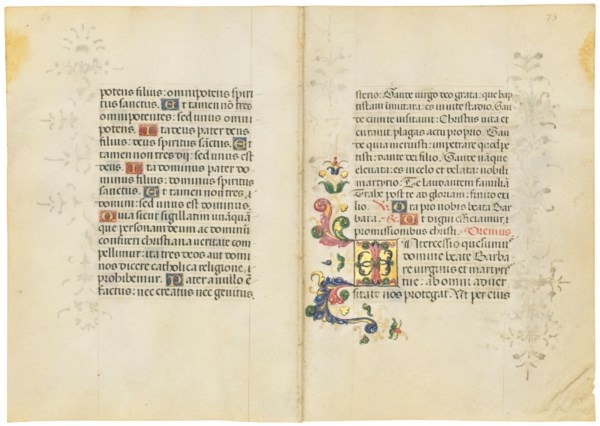 potens filius: omnipotens spiri
tus sanctus. Et tamen nõ tres
omnipotentes: sed unus omni
potens. Ita deus pater deus
filius: deus spiritus sãctus. Et
tamen non tres dij: sed unus est
deus. Ita dominus pater do
minus filius: dominus spiritus
sanctus. Et tamen non tres
domini: sed unus est dominus.
Quia sicut sigillatim unãquã
que personam deum ac dominũ
confiteri christiana veritate com
pellimur: ita tres deos aut domi
nos dicere catholica religione
prohibemur. Pater a nullo ẽ
factus: nec creatus nec genitus.
73
sterio: Gaude virgo deo grata: que bap
tistam imitata: es in vite stadio. Gau
de cum te visitavit: Christus vita et
curavit plagas actu proprio. Gau
de quia meruisti: impetrare quod pe
tisti: dante dei filio. Gaude nãque
elevata: es in celo et velata: nobili
martyrio. Te laudantem familiã
Trahe post te ad gloriam: finito exi
lio. Ora pro nobis beata Bar
bara. Ut digni efficiamur
promissionibus christi. Oremus
Intercessio quesumus
domine beate Barba
re virginis et martyris
tue: ab omni adver
sitate nos protegat. Ut per eius